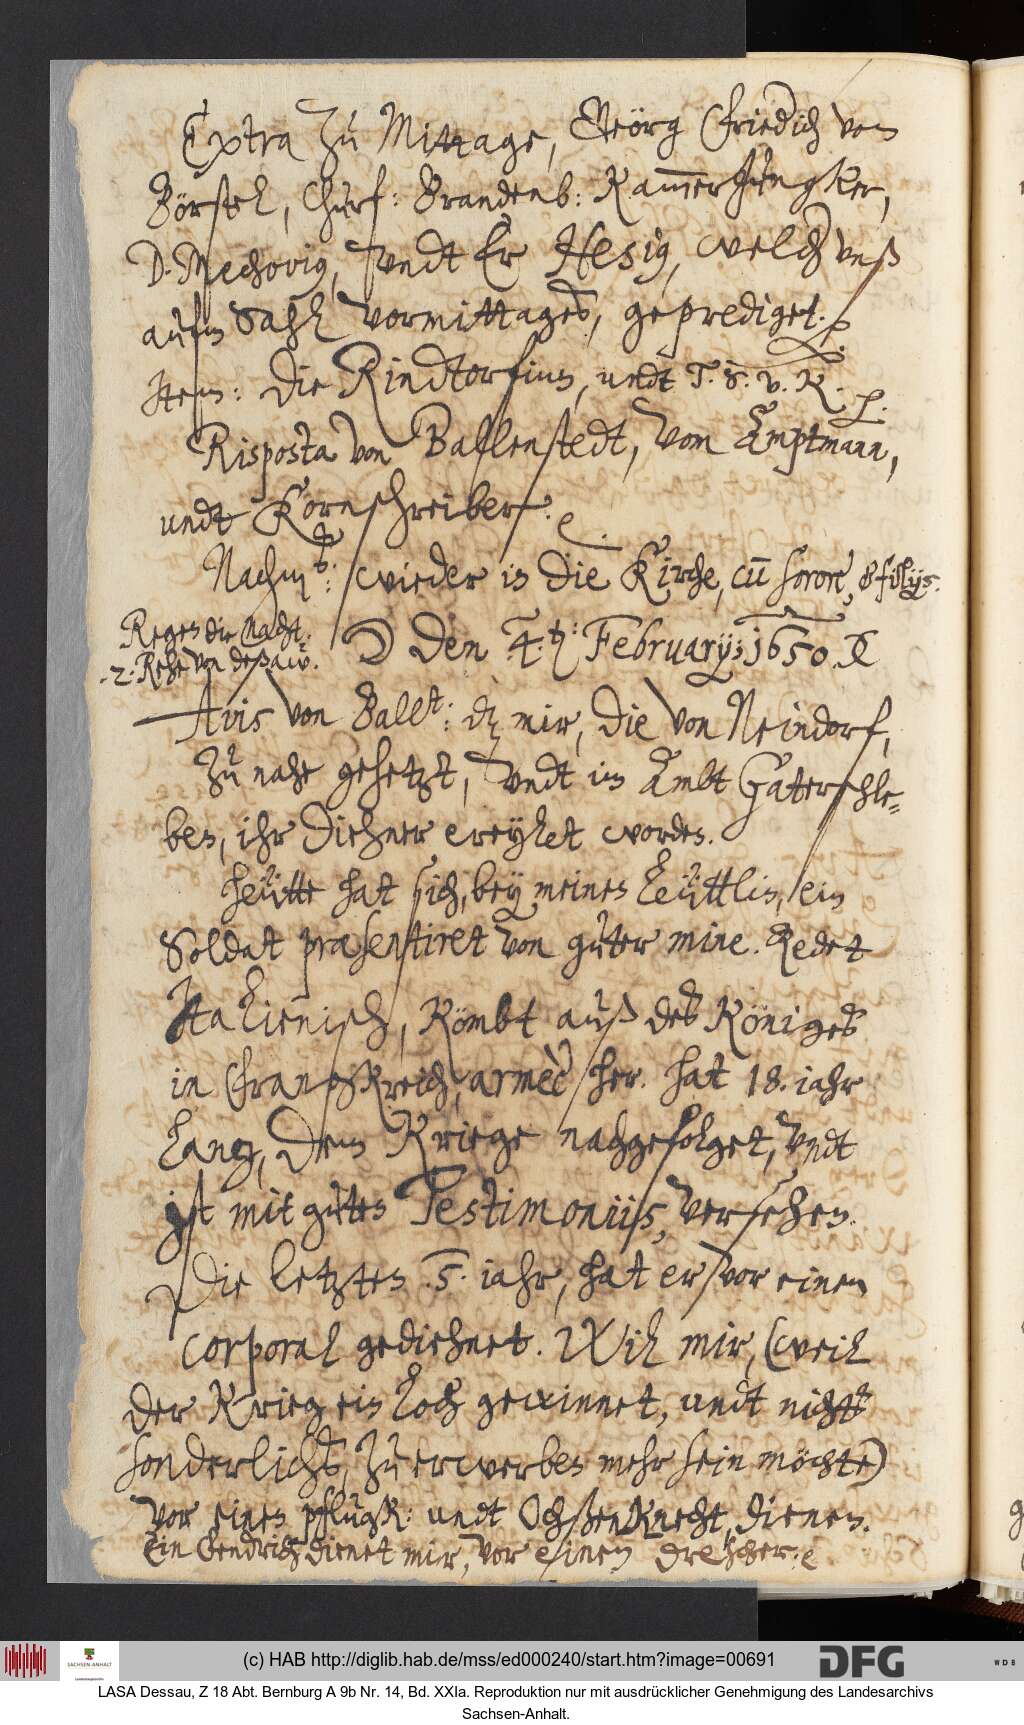 Extra zu Mittage, Geörg Friedich von
Börstel, Churf: Brandenb: Kammerjungker,
D. Mechovig, undt Er Hesig, welch unß
aufm Sahl vormittages, geprediget.
Item: die Rindtorfinn, undt T. S. v. K.
Risposta von Ballenstedt, vom Amptmann,
undt Kornschreiber.
Nachm: wieder in die Kirche, cum sorore, & filijs.
Regen die Nacht.
2. Rehe von deßaw.
☽ den 4. Februarij; 1650.
Avis von Ballt: dz mir, die von Neindorf,
zu nahe gehetzt, undt im Ambt Gaterschle-
ben, ihr diehner ereylet worden.
heütte hat sich, bey meinen Leüttlin, ein
Soldat præsentiret von guter mine. Redet
Italienisch, Kömbt auß des Königes
in Franckreich, armèè her. hat 18. iahr
lang, dem Kriege nachgefolget, undt
ist mit guten Testimoniis, versehen.
Die letzten .5. iahr, hat er vor einen
corporal gediehnet. Wil mir, (weil
der Krieg ein loch gewinnet, undt nichts
sonderlichs, zu erwerben mehr sein möchte)
vor einen pflugk: undt Ochßenknecht, dienen.
Ein Gendrich dienet mir, vor einen drescher.
(c) HAB http://diglib.hab.de/mss/ed000240/start.htm?image=00691
SACHSEN-ANHALT
DFG
WDB
LASA Dessau, Z 18 Abt. Bernburg A 9b Nr. 14, Bd. XXIa. Reproduktion nur mit ausdrücklicher Genehmigung des Landesarchivs
Sachsen-Anhalt.